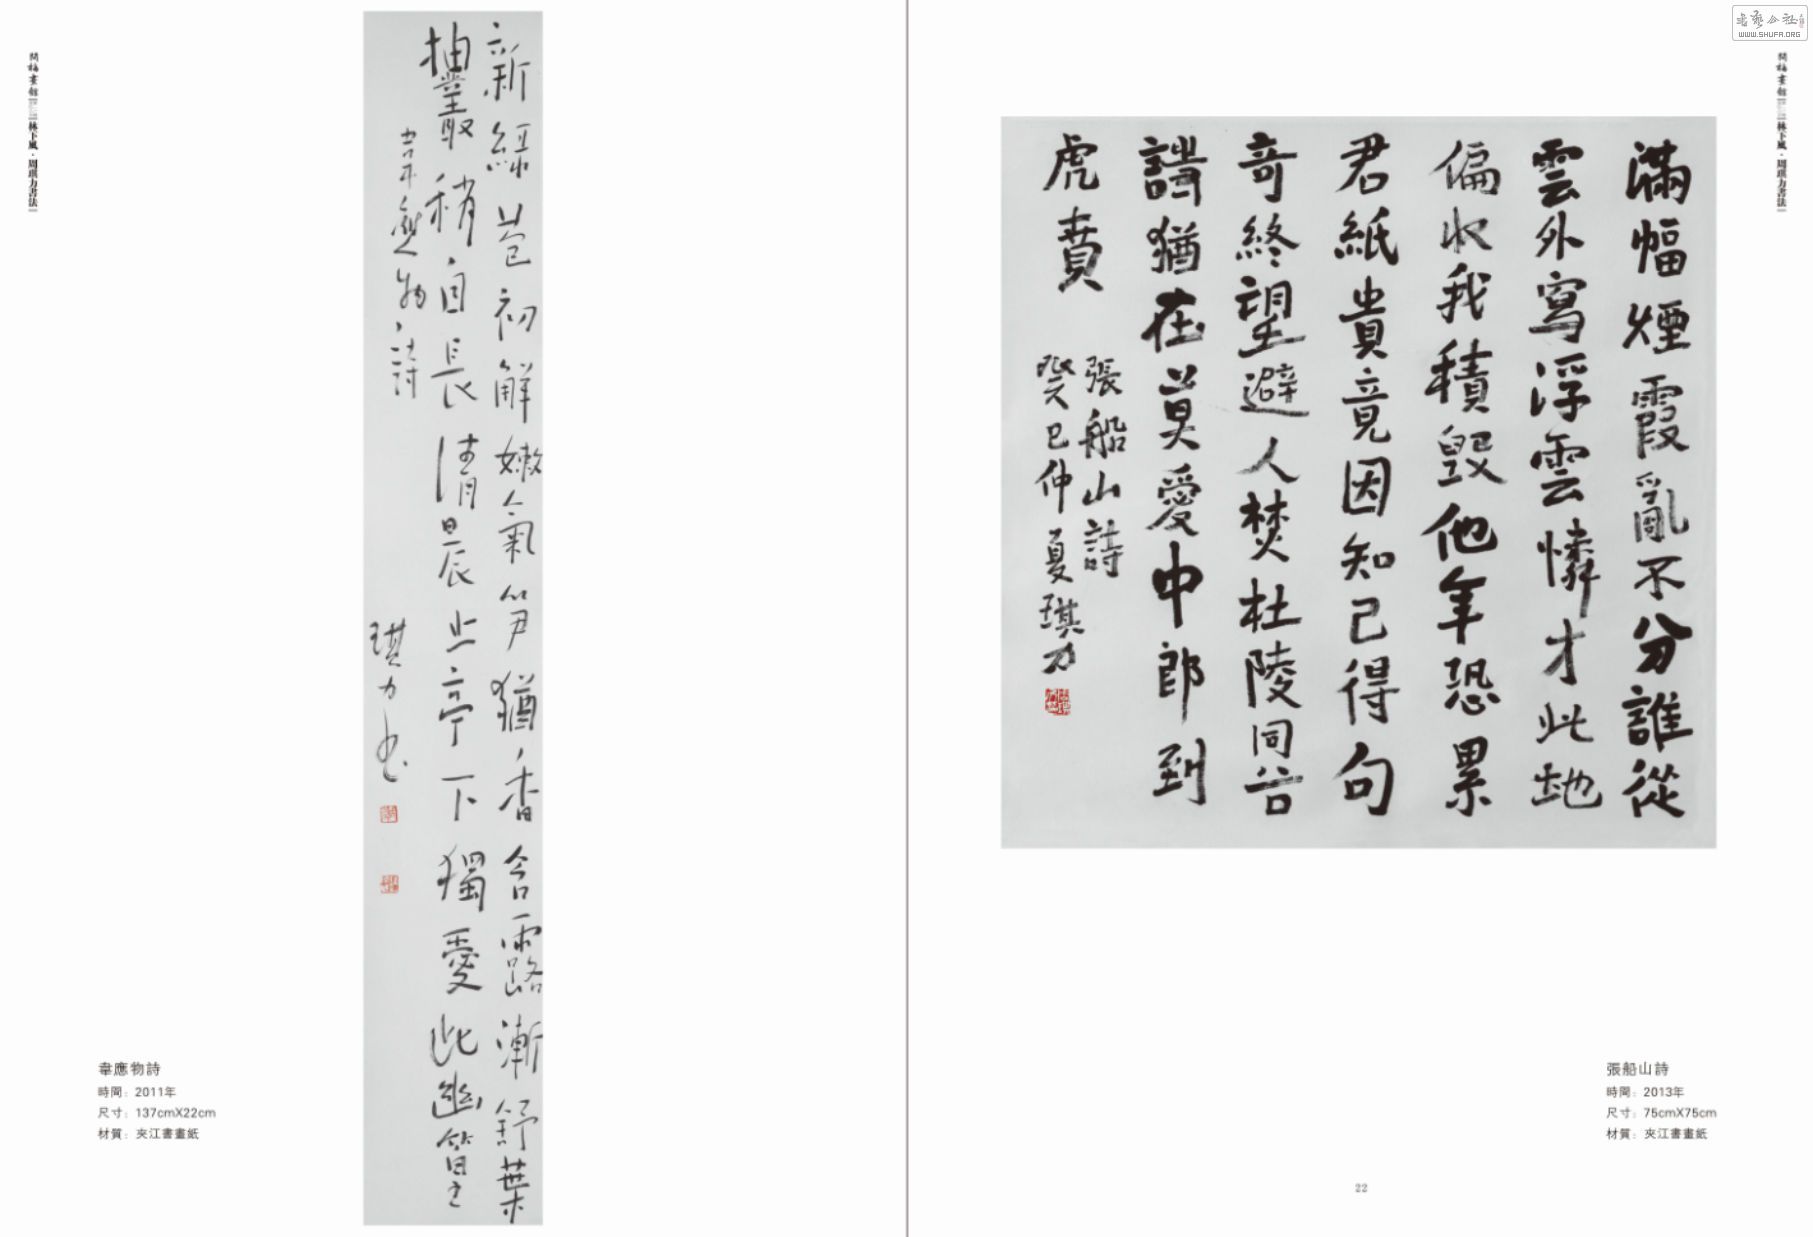 林下風·周琪力書法
新綠苞初解嫩氣笋猶香含露漸舒葉
抽叢稍自長清晨止亭下獨愛此幽篁
韋應物詩
琪力書
韋應物詩
時間：2011年
尺寸：137cmX22cm
材質：夾江書畫紙
WWW.SHUFA.ORG
林下風·周琪力書法
滿幅煙霞亂不分誰從
雲外寫浮雲憐才此地
偏收我積毀他年恐累
君紙貴竟因知己得句
奇終望避人焚杜陵同谷
詩猶在莫愛中郎到
虎賁
張船山詩
癸巳仲夏琪力
張船山詩
時間：2013年
尺寸：75cmX75cm
材質：夾江書畫紙
22